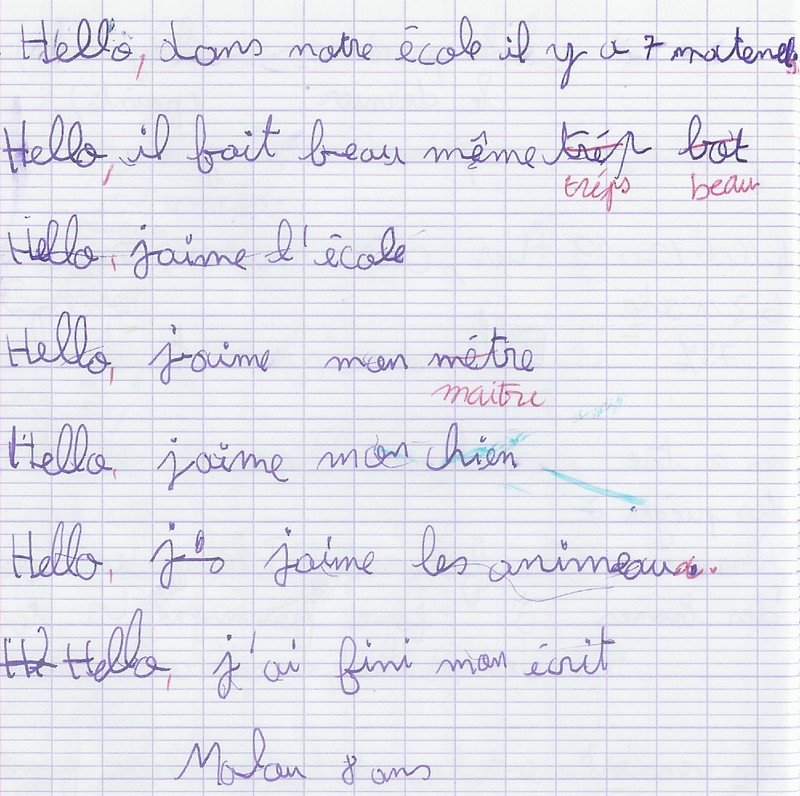 Hello, dans notre école il y a 7 matenels
Hello, il fait beau même trép bot
tréps beau
Hello, jaime l'école
Hello, j-aime mon métre
maitre
Hello, jaime mon chien
Hello, jaime les animeaux.
Hello, j'ai fini mon écrit
8 ans